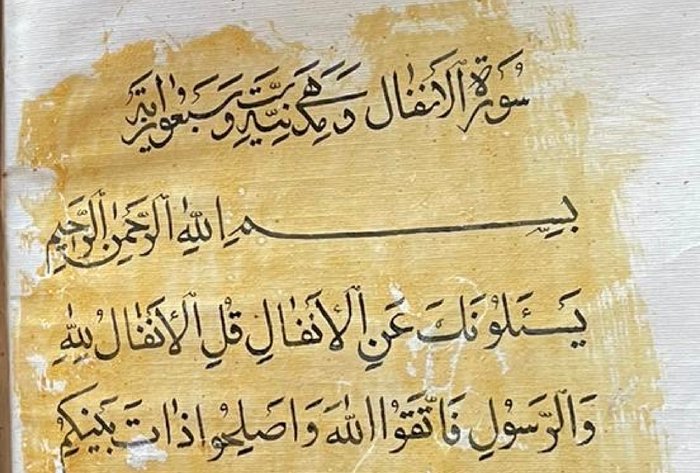 سُورَةُ الْاَنْفَالِ وَهِيَ مَدَنِيَّةٌ وَسَبْعُونَ اٰيَة
بِسْمِ اللّٰهِ الرَّحْمٰنِ الرَّحِيمِ
يَسْـَٔلُونَكَ عَنِ الْاَنْفَالِ قُلِ الْاَنْفَالُ لِلّٰهِ
وَالرَّسُولِ فَاتَّقُوا اللّٰهَ وَاَصْلِحُوا ذَاتَ بَيْنِكُمْ